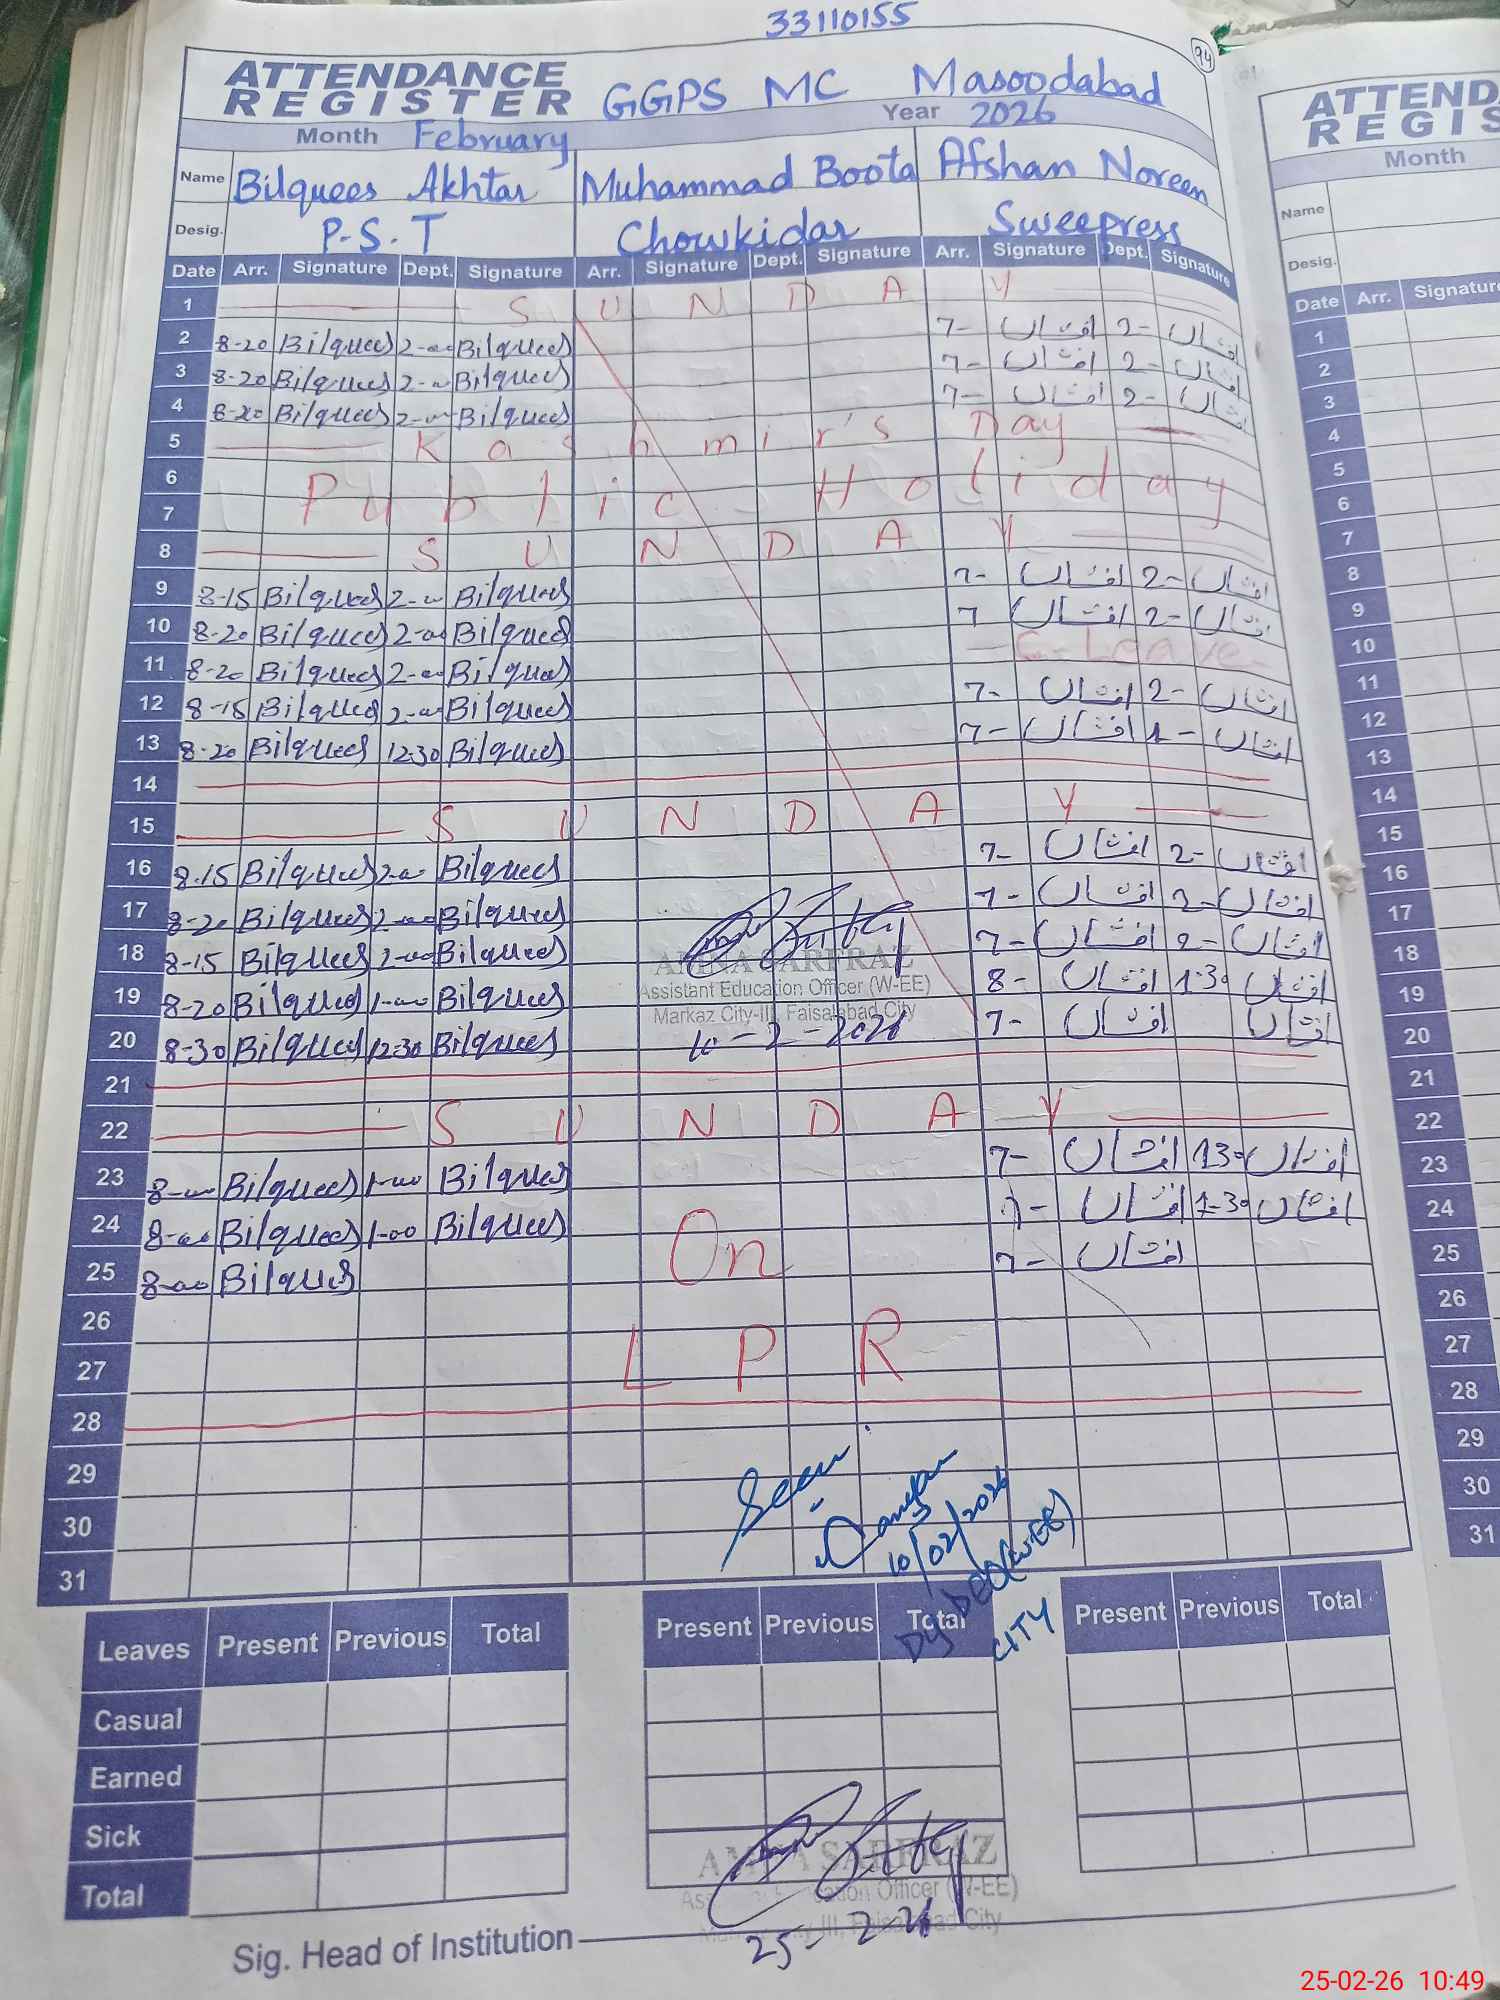 33110155
94
ATTENDANCE REGISTER GGPS MC Masoodabad
Month February Year 2026
Name Bilquees Akhtar Muhammad Boota Afshan Noreen
Desig. P-S-T Chowkidar Sweepress
Date Arr. Signature Dept. Signature Arr. Signature Dept. Signature Arr. Signature Dept. Signature
1 SUNDAY
2 8-20 Bilquees 2-00 Bilquees 7- افشاں 2- افشاں
3 8-20 Bilquees 2-00 Bilquees 7- افشاں 2- افشاں
4 8-20 Bilquees 2-00 Bilquees 7- افشاں 2- افشاں
5 Kashmir's Day
6
7 Public Holiday
8 SUNDAY
9 8-15 Bilquees 2-00 Bilquees 7- افشاں 2- افشاں
10 8-20 Bilquees 2-00 Bilquees 7 افشاں 2- افشاں
11 8-20 Bilquees 2-00 Bilquees C-Leave
12 8-15 Bilquees 2-00 Bilquees 7- افشاں 2- افشاں
13 8-20 Bilquees 12-30 Bilquees 7- افشاں 1- افشاں
14
15 SUNDAY
16 8-15 Bilquees 2-00 Bilquees 7- افشاں 2- افشاں
17 8-20 Bilquees 2-00 Bilquees 7- افشاں 2- افشاں
18 8-15 Bilquees 2-00 Bilquees 7- افشاں 2- افشاں
AMNA SARFRAZ
Assistant Education Officer (W-EE)
Markaz City-III, Faisalabad City
10-2-2026
19 8-20 Bilquees 1-00 Bilquees 8- افشاں 1-30 افشاں
20 8-30 Bilquees 12-30 Bilquees 7- افشاں افشاں
21
22 SUNDAY
23 8-00 Bilquees 1-00 Bilquees 7- افشاں 1-30 افشاں
24 8-00 Bilquees 1-00 Bilquees On 7- افشاں 1-30 افشاں
25 8-00 Bilquees 7- افشاں
26
27 LPR
28
29
30
31
Seen
10/02/2026
Dy DEO (W-EE)
CITY
Leaves Present Previous Total Present Previous Total Present Previous Total
Casual
Earned
Sick
Total
AMNA SARFRAZ
Assistant Education Officer (W-EE)
Markaz City-III, Faisalabad City
25-2-26
Sig. Head of Institution
ATTEND
REGIS
Month
Name
Desig.
Date Arr. Signature
1
2
3
4
5
6
7
8
9
10
11
12
13
14
15
16
17
18
19
20
21
22
23
24
25
26
27
28
29
30
31
25-02-26 10:49